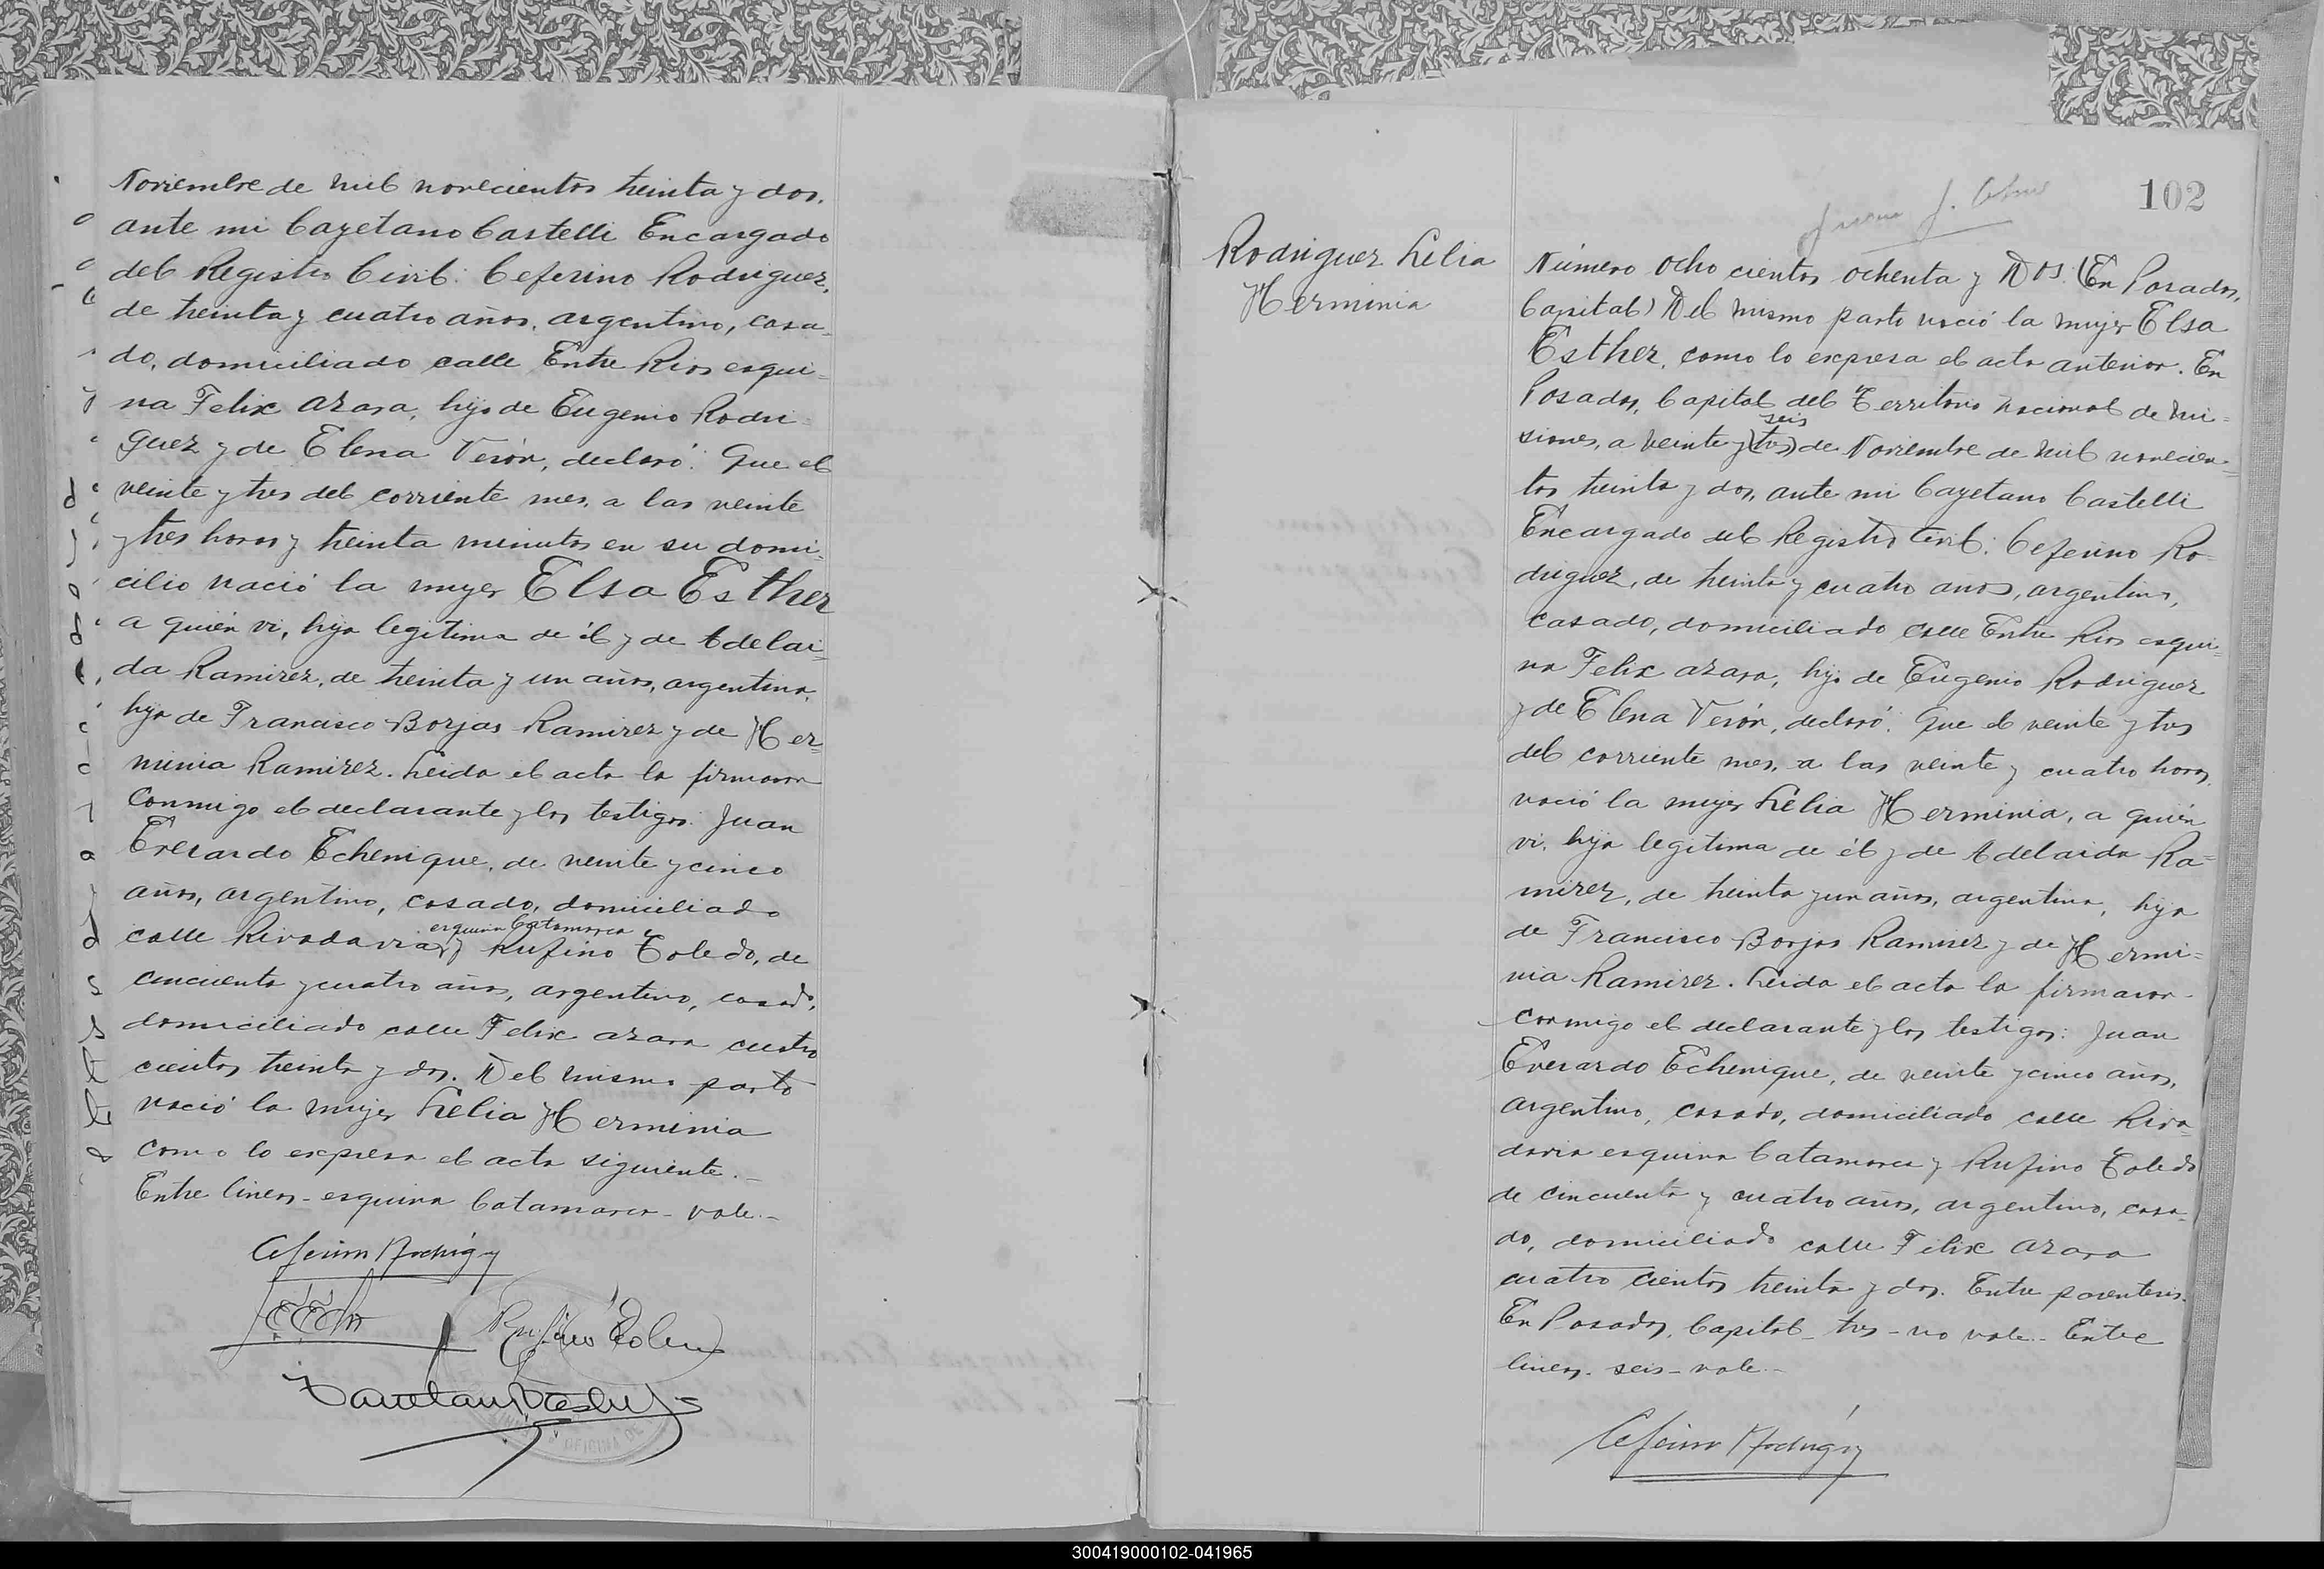 Noviembre de mil novecientos treinta y dos,
ante mi Cayetano Castelli Encargado
del Registro Civil: Ceferino Rodriguez,
de treinta y cuatro años, argentino, casa-
do, domiciliado calle Entre Rios esqui-
na Felix Azara, hijo de Eugenio Rodri-
guez y de Elena Verón, declaró: Que el
veinte y tres del corriente mes, a las veinte
y tres horas y treinta minutos en su domi-
cilio nació la mujer Elsa Esther
a quién vi, hija legitima de él y de Adelai-
da Ramirez, de treinta y un años, argentina,
hija de Francisco Borjas Ramirez y de Her-
minia Ramirez. Leida el acta la firmaron
conmigo el declarante y los testigos: Juan
Everardo Echenique, de veinte y cinco
años, argentino, casado, domiciliado
esquina Catamarca
calle Rivadavia y Rufino Toledo, de
cincuenta y cuatro años, argentino, casado,
domiciliado calle Felix Azara cuatro
cientos treinta y dos. Del mismo parto
nació la mujer Lelia Herminia
como lo expresa el acta siguiente.-
Entre lineas - esquina Catamarca - vale.-
Ceferino Rodriguez
Rufino Toledo
OFICINA DE
102
Rodriguez Lelia
Herminia
Número ocho cientos ochenta y Dos. (En Posadas,
Capital) Del mismo parto nació la mujer Elsa
Esther, como lo expresa el acta anterior. En
Posadas, Capital del Territorio Nacional de Mi-
seis
siones, a veinte y (tres) de Noviembre de mil novecien-
tos treinta y dos, ante mi Cayetano Castelli
Encargado del Registro Civil: Ceferino Ro-
driguez, de treinta y cuatro años, argentino,
casado, domiciliado calle Entre Rios esqui-
na Felix Azara, hijo de Eugenio Rodriguez
y de Elena Verón, declaró: Que el veinte y tres
del corriente mes, a las veinte y cuatro horas,
nació la mujer Lelia Herminia, a quién
vi, hija legitima de él y de Adelaida Ra-
mirez, de treinta y un años, argentina, hija
de Francisco Borjas Ramirez y de Hermi-
nia Ramirez. Leida el acta la firmaron
conmigo el declarante y los testigos: Juan
Everardo Echenique, de veinte y cinco años,
argentino, casado, domiciliado calle Riva-
davia esquina Catamarca y Rufino Toledo
de cincuenta y cuatro años, argentino, casa-
do, domiciliado calle Felix Azara
cuatro cientos treinta y dos. Entre parentesis.
En Posadas, Capital - tres - no vale. - Entre
lineas. seis - vale -
Ceferino Rodriguez
300419000102-041965